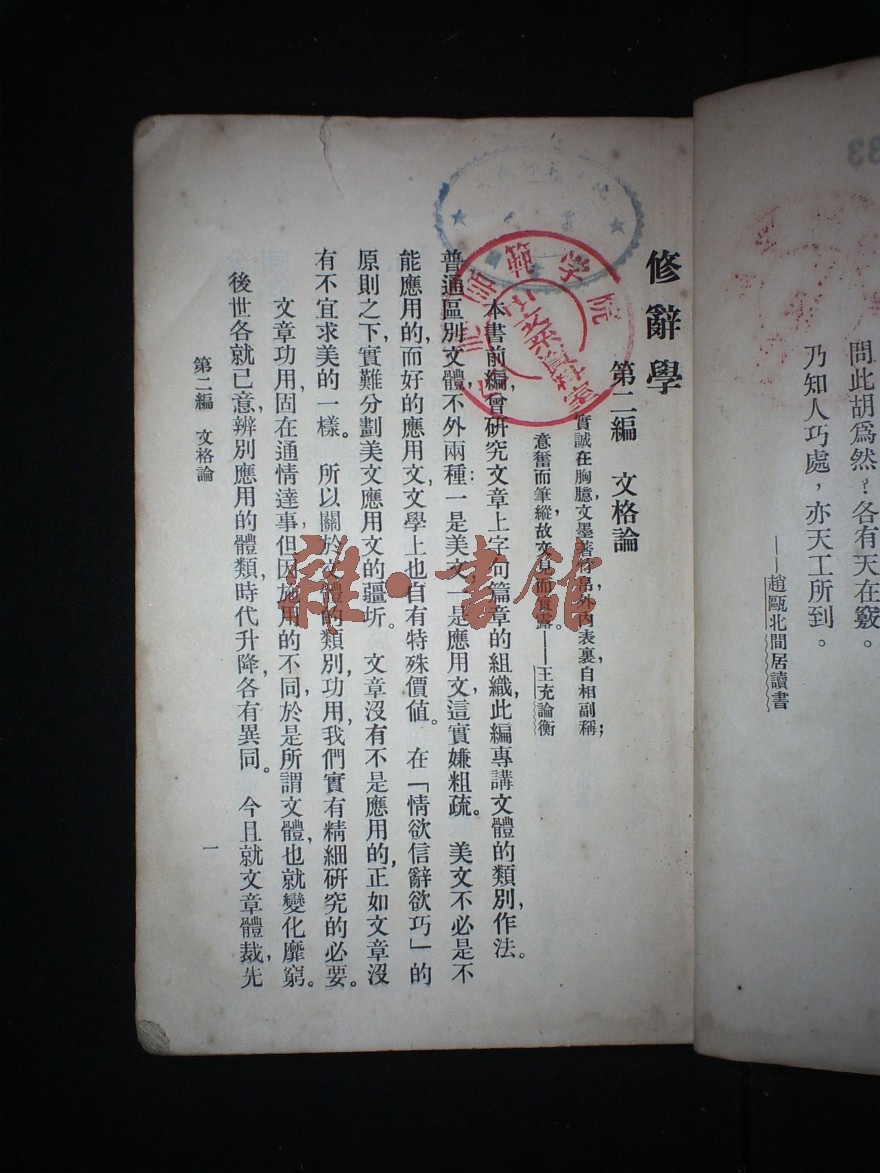 問此胡爲然？各有天在竅。
乃知人巧處，亦天工所到。
——趙甌北閒居讀書
修辭學
第二編　文格論
實誠在胸臆，文墨著竹帛，外內表裏，自相副稱；
意奮而筆縱，故文見而實露。——王充論衡
本書前編，曾研究文章上字句篇章的組織，此編專講文體的類別，作法。
普通區別文體，不外兩種：一是美文，一是應用文，這實嫌粗疏。　美文不必是不
能應用的，而好的應用文，文學上也自有特殊價值。　在「情欲信，辭欲巧」的
原則之下，實難分劃美文應用文的疆圻。　文章沒有不是應用的，正如文章沒
有不宜求美的一樣。　所以關於文體的類別，功用，我們實有精細研究的必要。
文章功用，固在通情達事，但因施用的不同，於是所謂文體，也就變化靡窮。
後世各就己意，辨別應用的體類，時代升降，各有異同。　今且就文章體裁，先
第二編　文格論
一
範学院
中文系資料室
雜·書館
33